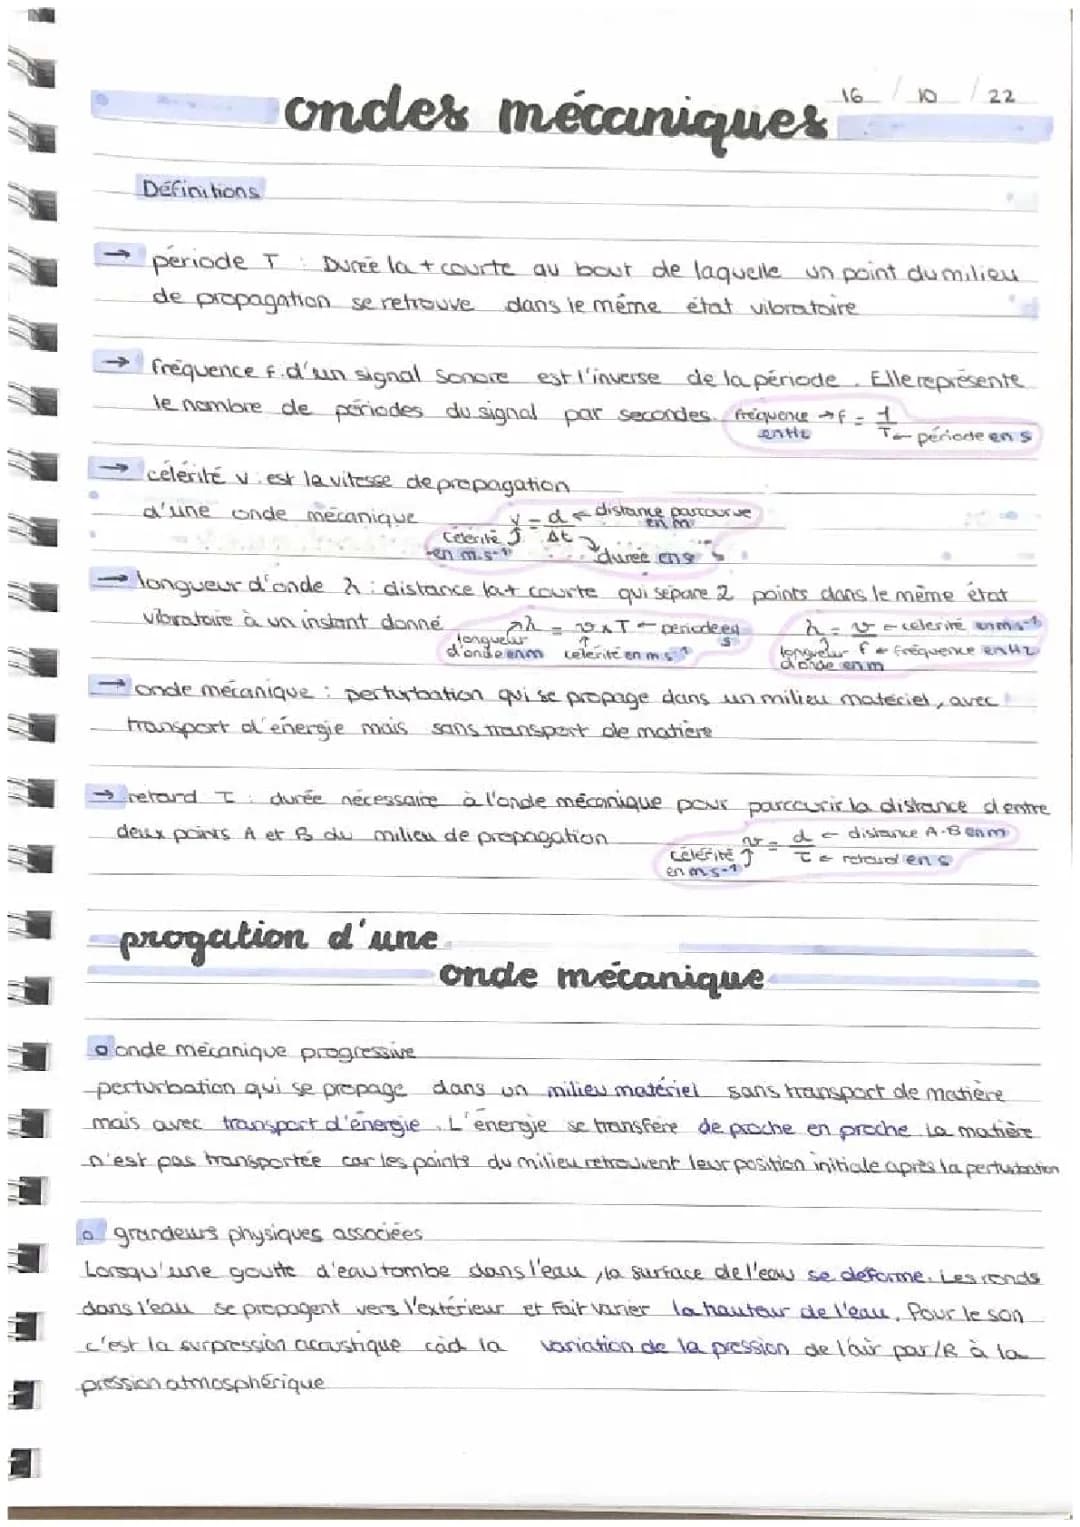 ondes mécaniques 16 / 10 / 22
Définitions
→ période T : Durée la + courte au bout de laquelle un point du milieu
de propagation se retrouve dans le même état vibratoire
→ fréquence f. d'un signal sonore est l'inverse de la période. Elle représente
le nombre de périodes du signal par secondes. fréquence → f = 1/T ← période en s
en Hz
→ célérité v : est la vitesse de propagation
d'une onde mécanique v = d/Δt ← distance parcourue en m
célérité en m.s-1 durée en s
→ longueur d'onde λ : distance la + courte qui sépare 2 points dans le même état
vibratoire à un instant donné λ = v × T ← periode en s λ = v/f ← celerité en m.s-1
longueur d'onde en m célérité en m.s-1 longueur d'onde en m ← fréquence en Hz
→ onde mécanique : perturbation qui se propage dans un milieu matériel, avec
transport d'énergie mais sans transport de matière
→ retard τ : durée nécessaire à l'onde mécanique pour parcourir la distance d entre
deux points A et B du milieu de propagation v = d/τ ← distance A-B en m
célérité en m.s-1 ← retard en s
progation d'une
onde mécanique
o onde mécanique progressive
perturbation qui se propage dans un milieu matériel sans transport de matière
mais avec transport d'énergie. L'énergie se transfère de proche en proche. La matière
n'est pas transportée car les points du milieu retrouvent leur position initiale après la perturbation
o grandeurs physiques associées
Lorsqu'une goutte d'eau tombe dans l'eau, la surface de l'eau se déforme. Les ronds
dans l'eau se propagent vers l'extérieur et fait varier la hauteur de l'eau. Pour le son
c'est la surpression acoustique càd la variation de la pression de l'air par/R à la
pression atmosphérique